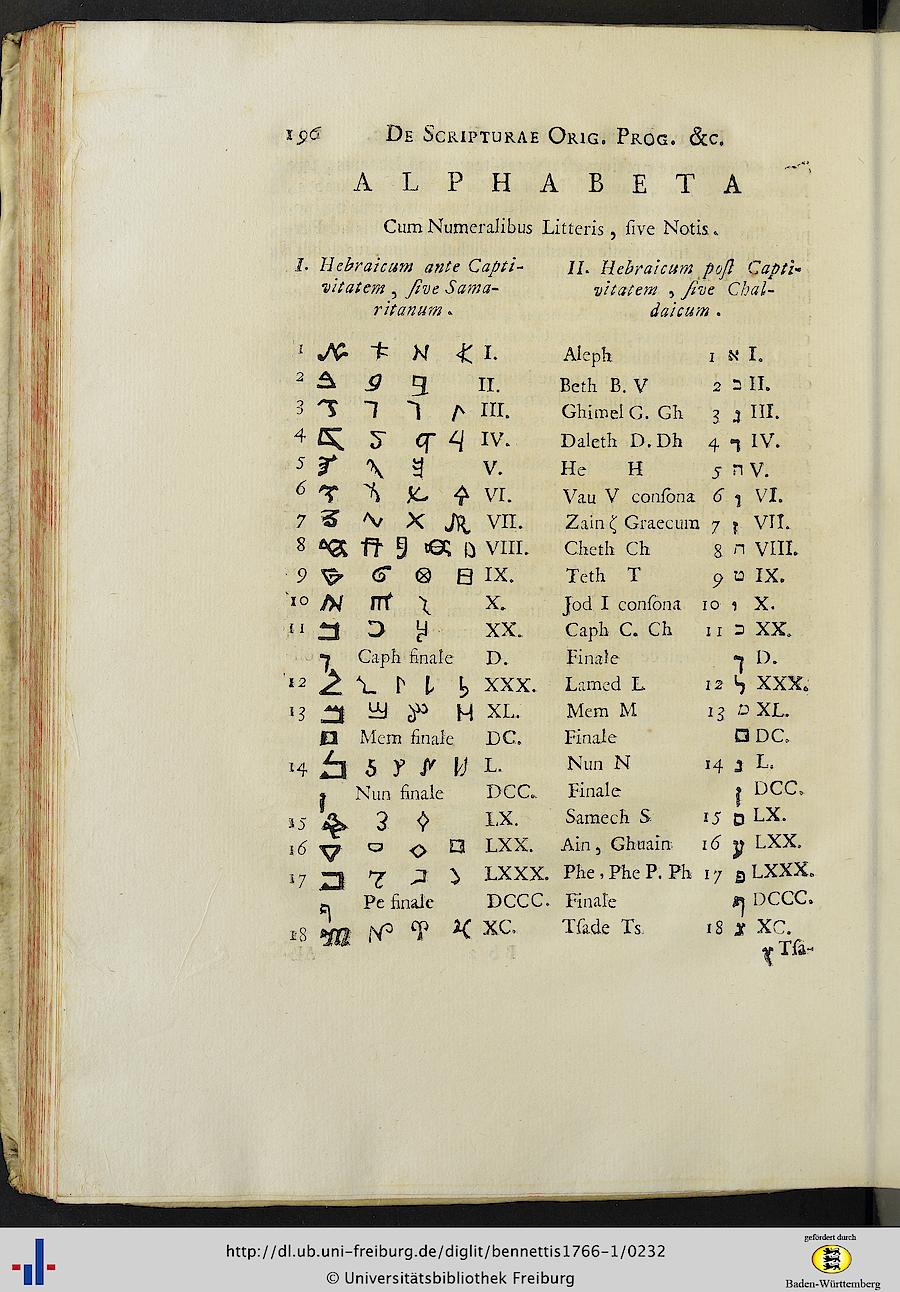 196 De Scripturae Orig. Prog. &c.
ALPHABETA
Cum Numeralibus Litteris, ſive Notis.
I. Hebraicum ante Capti-
vitatem, ſive Sama-
ritanum.
II. Hebraicum poſt Capti-
vitatem, ſive Chal-
daicum.
1 I. Aleph 1 א I.
2 II. Beth B. V 2 ב II.
3 III. Ghimel G. Gh 3 ג III.
4 IV. Daleth D. Dh 4 ד IV.
5 V. He H 5 ה V.
6 VI. Vau V conſona 6 ו VI.
7 VII. Zain ζ Graecum 7 ז VII.
8 VIII. Cheth Ch 8 ח VIII.
9 IX. Teth T 9 ט IX.
10 X. Jod I conſona 10 י X.
11 XX. Caph C. Ch 11 כ XX.
Caph finale D. Finale ך D.
12 XXX. Lamed L 12 ל XXX.
13 XL. Mem M 13 מ XL.
Mem finale DC. Finale ם DC.
14 L. Nun N 14 נ L.
Nun finale DCC. Finale ן DCC.
15 LX. Samech S 15 ס LX.
16 LXX. Ain, Ghnain 16 ע LXX.
17 LXXX. Phe, Phe P. Ph 17 פ LXXX.
Pe finale DCCC. Finale ף DCCC.
18 XC. Tſade Ts 18 צ XC.
ץ Tſa-
http://dl.ub.uni-freiburg.de/diglit/bennettis1766-1/0232
© Universitätsbibliothek Freiburg
gefördert durch
Baden-Württemberg